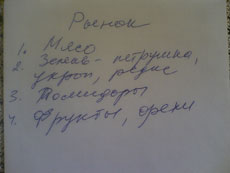 Рынок
1. Мясо
2. Зелень - петрушка,
укроп, редис
3. Помидоры
4. Фрукты, орехи